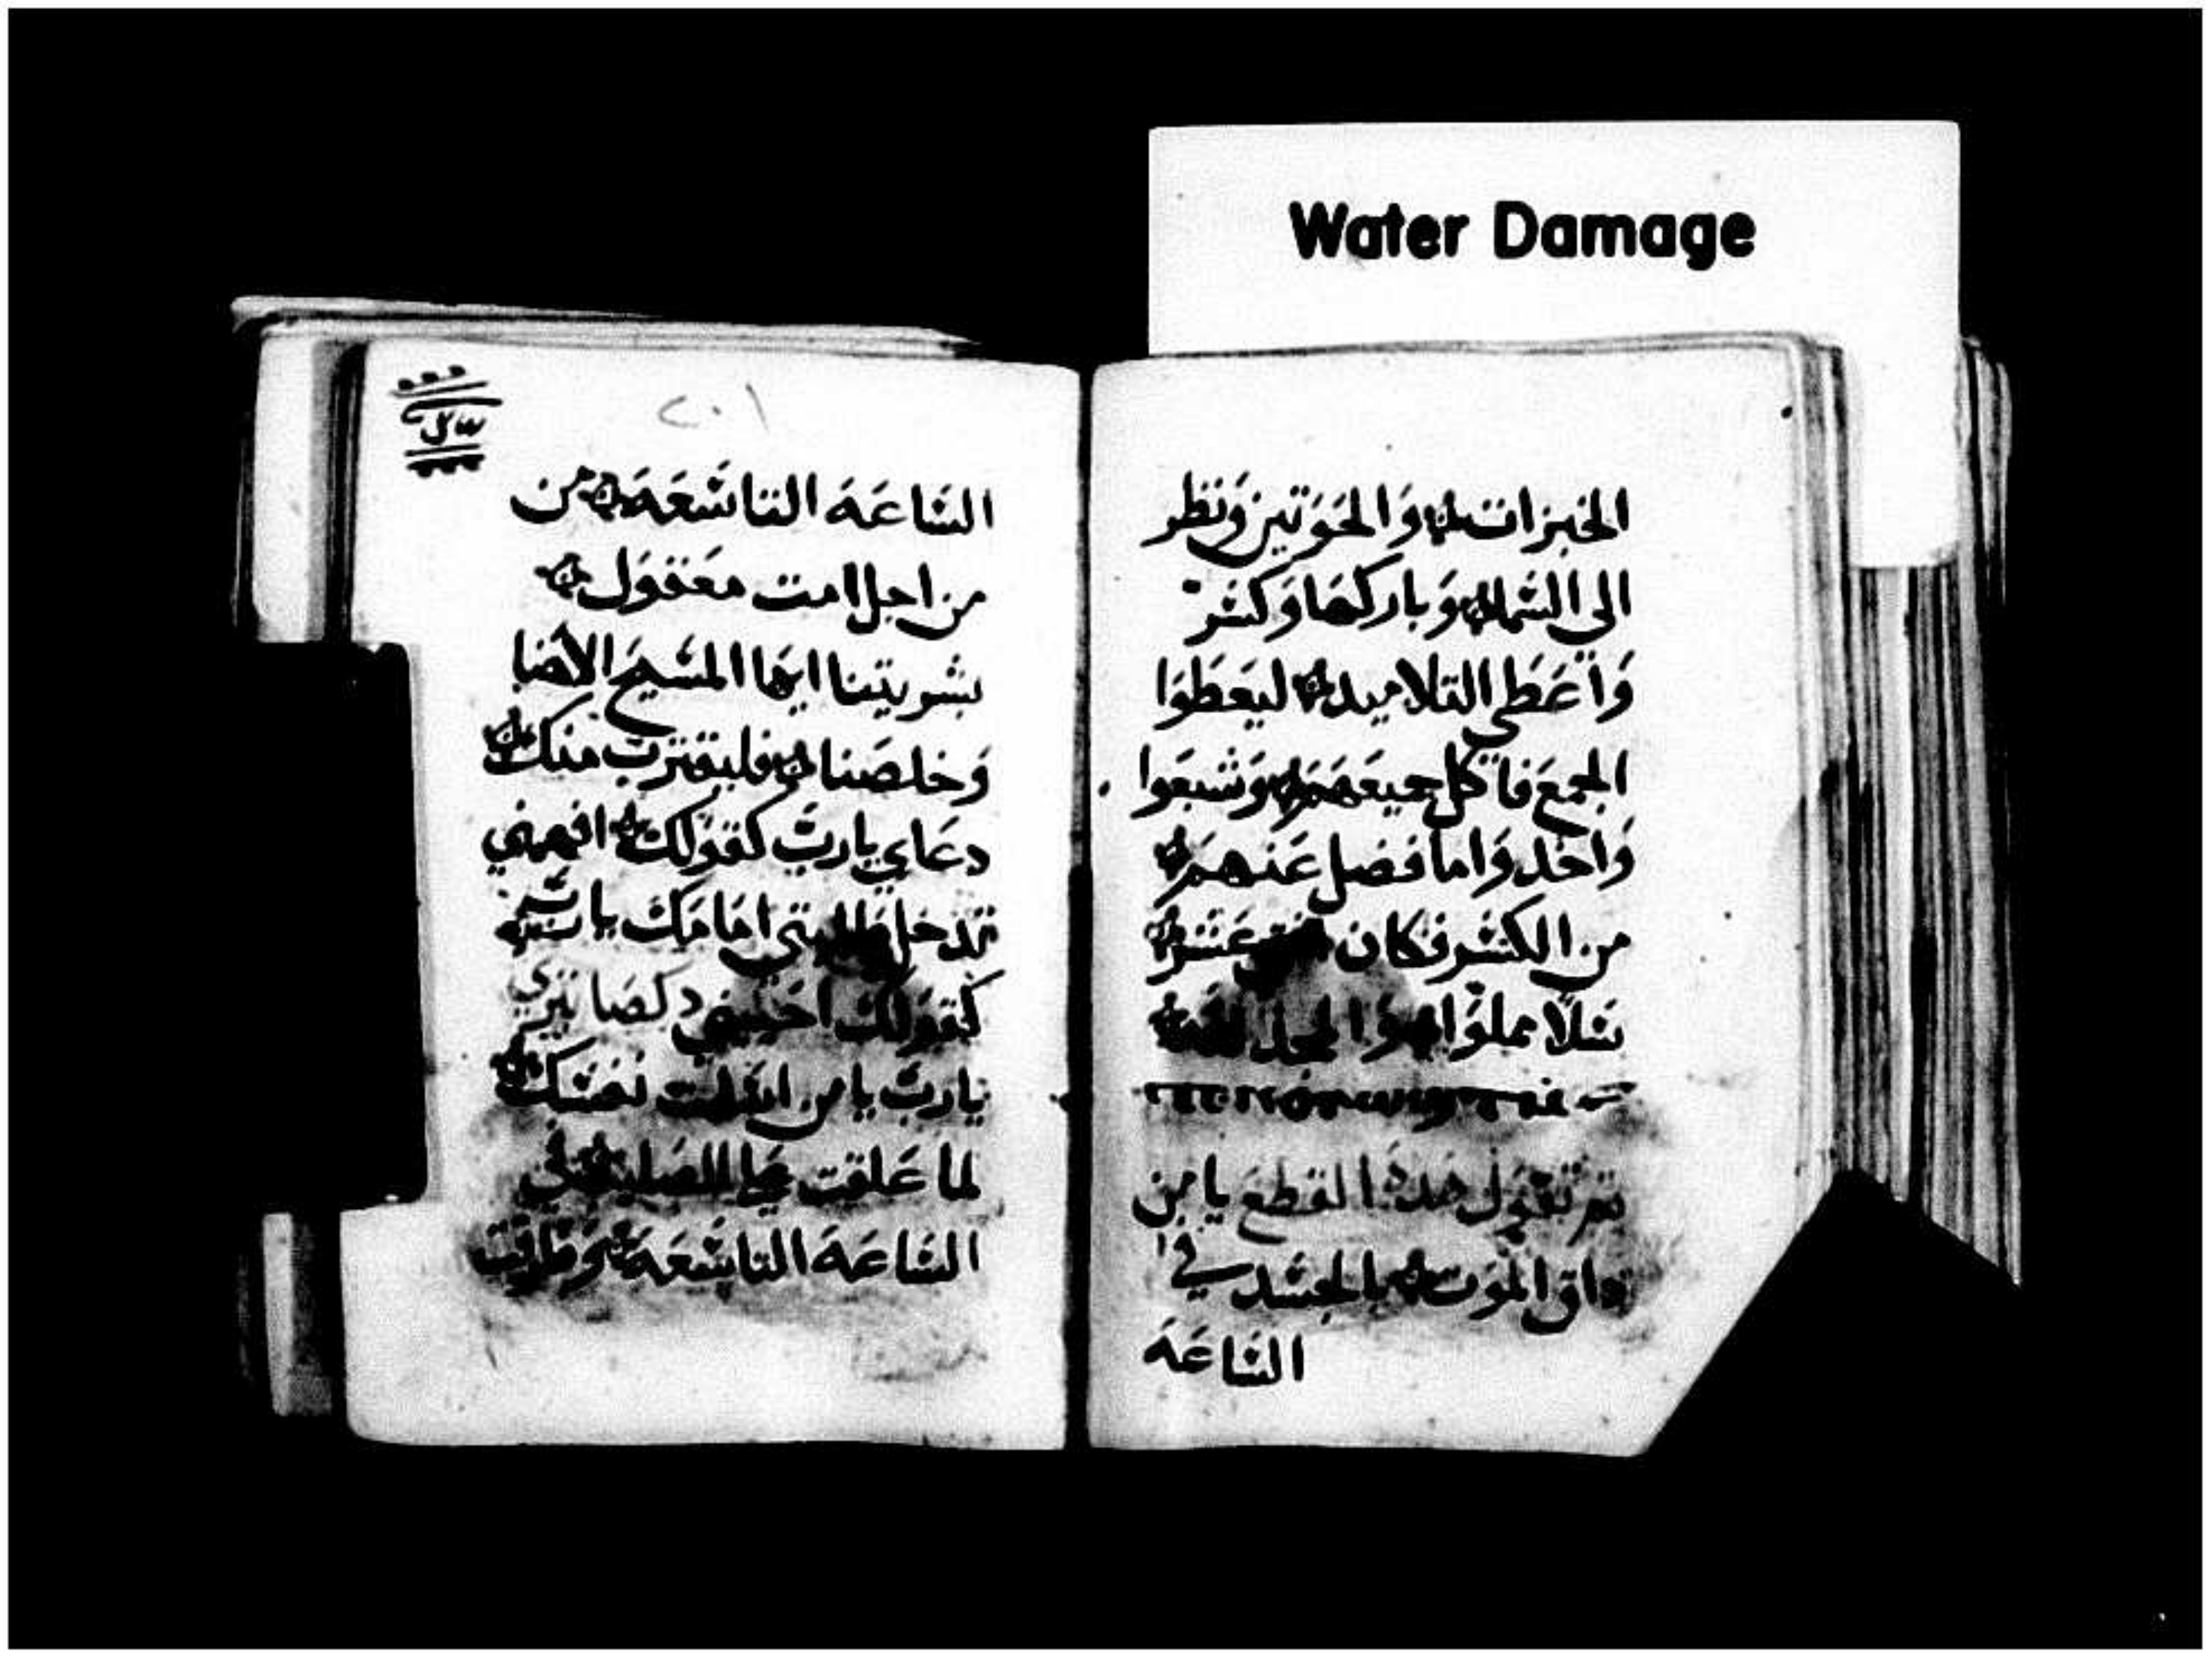 Water Damage
الخبزات والحوتين ونظر
الى السما وباركها وكسر
واعطى التلاميد ليعطوا
الجمع فاكل جميعهم وشبعوا
واخد واما فضل عنهم
من الكسر فكان عشر
سلا مملوا المجد لله
تم تقول هده القطع يا من
داق الموت بالجسد في
الساعة
٢٠١
الساعة التاسعة من
من اجل امت معقول
بشريتنا ايها المسيح الاهنا
وخلصنا فليقترب منك
دعاي يارب كقولك افهمني
تدخل طلبتي امامك يا سيد
كقولك احييني
يارب يا من اسلمت نفسك
لما علقت على الصليب في
الساعة التاسعة